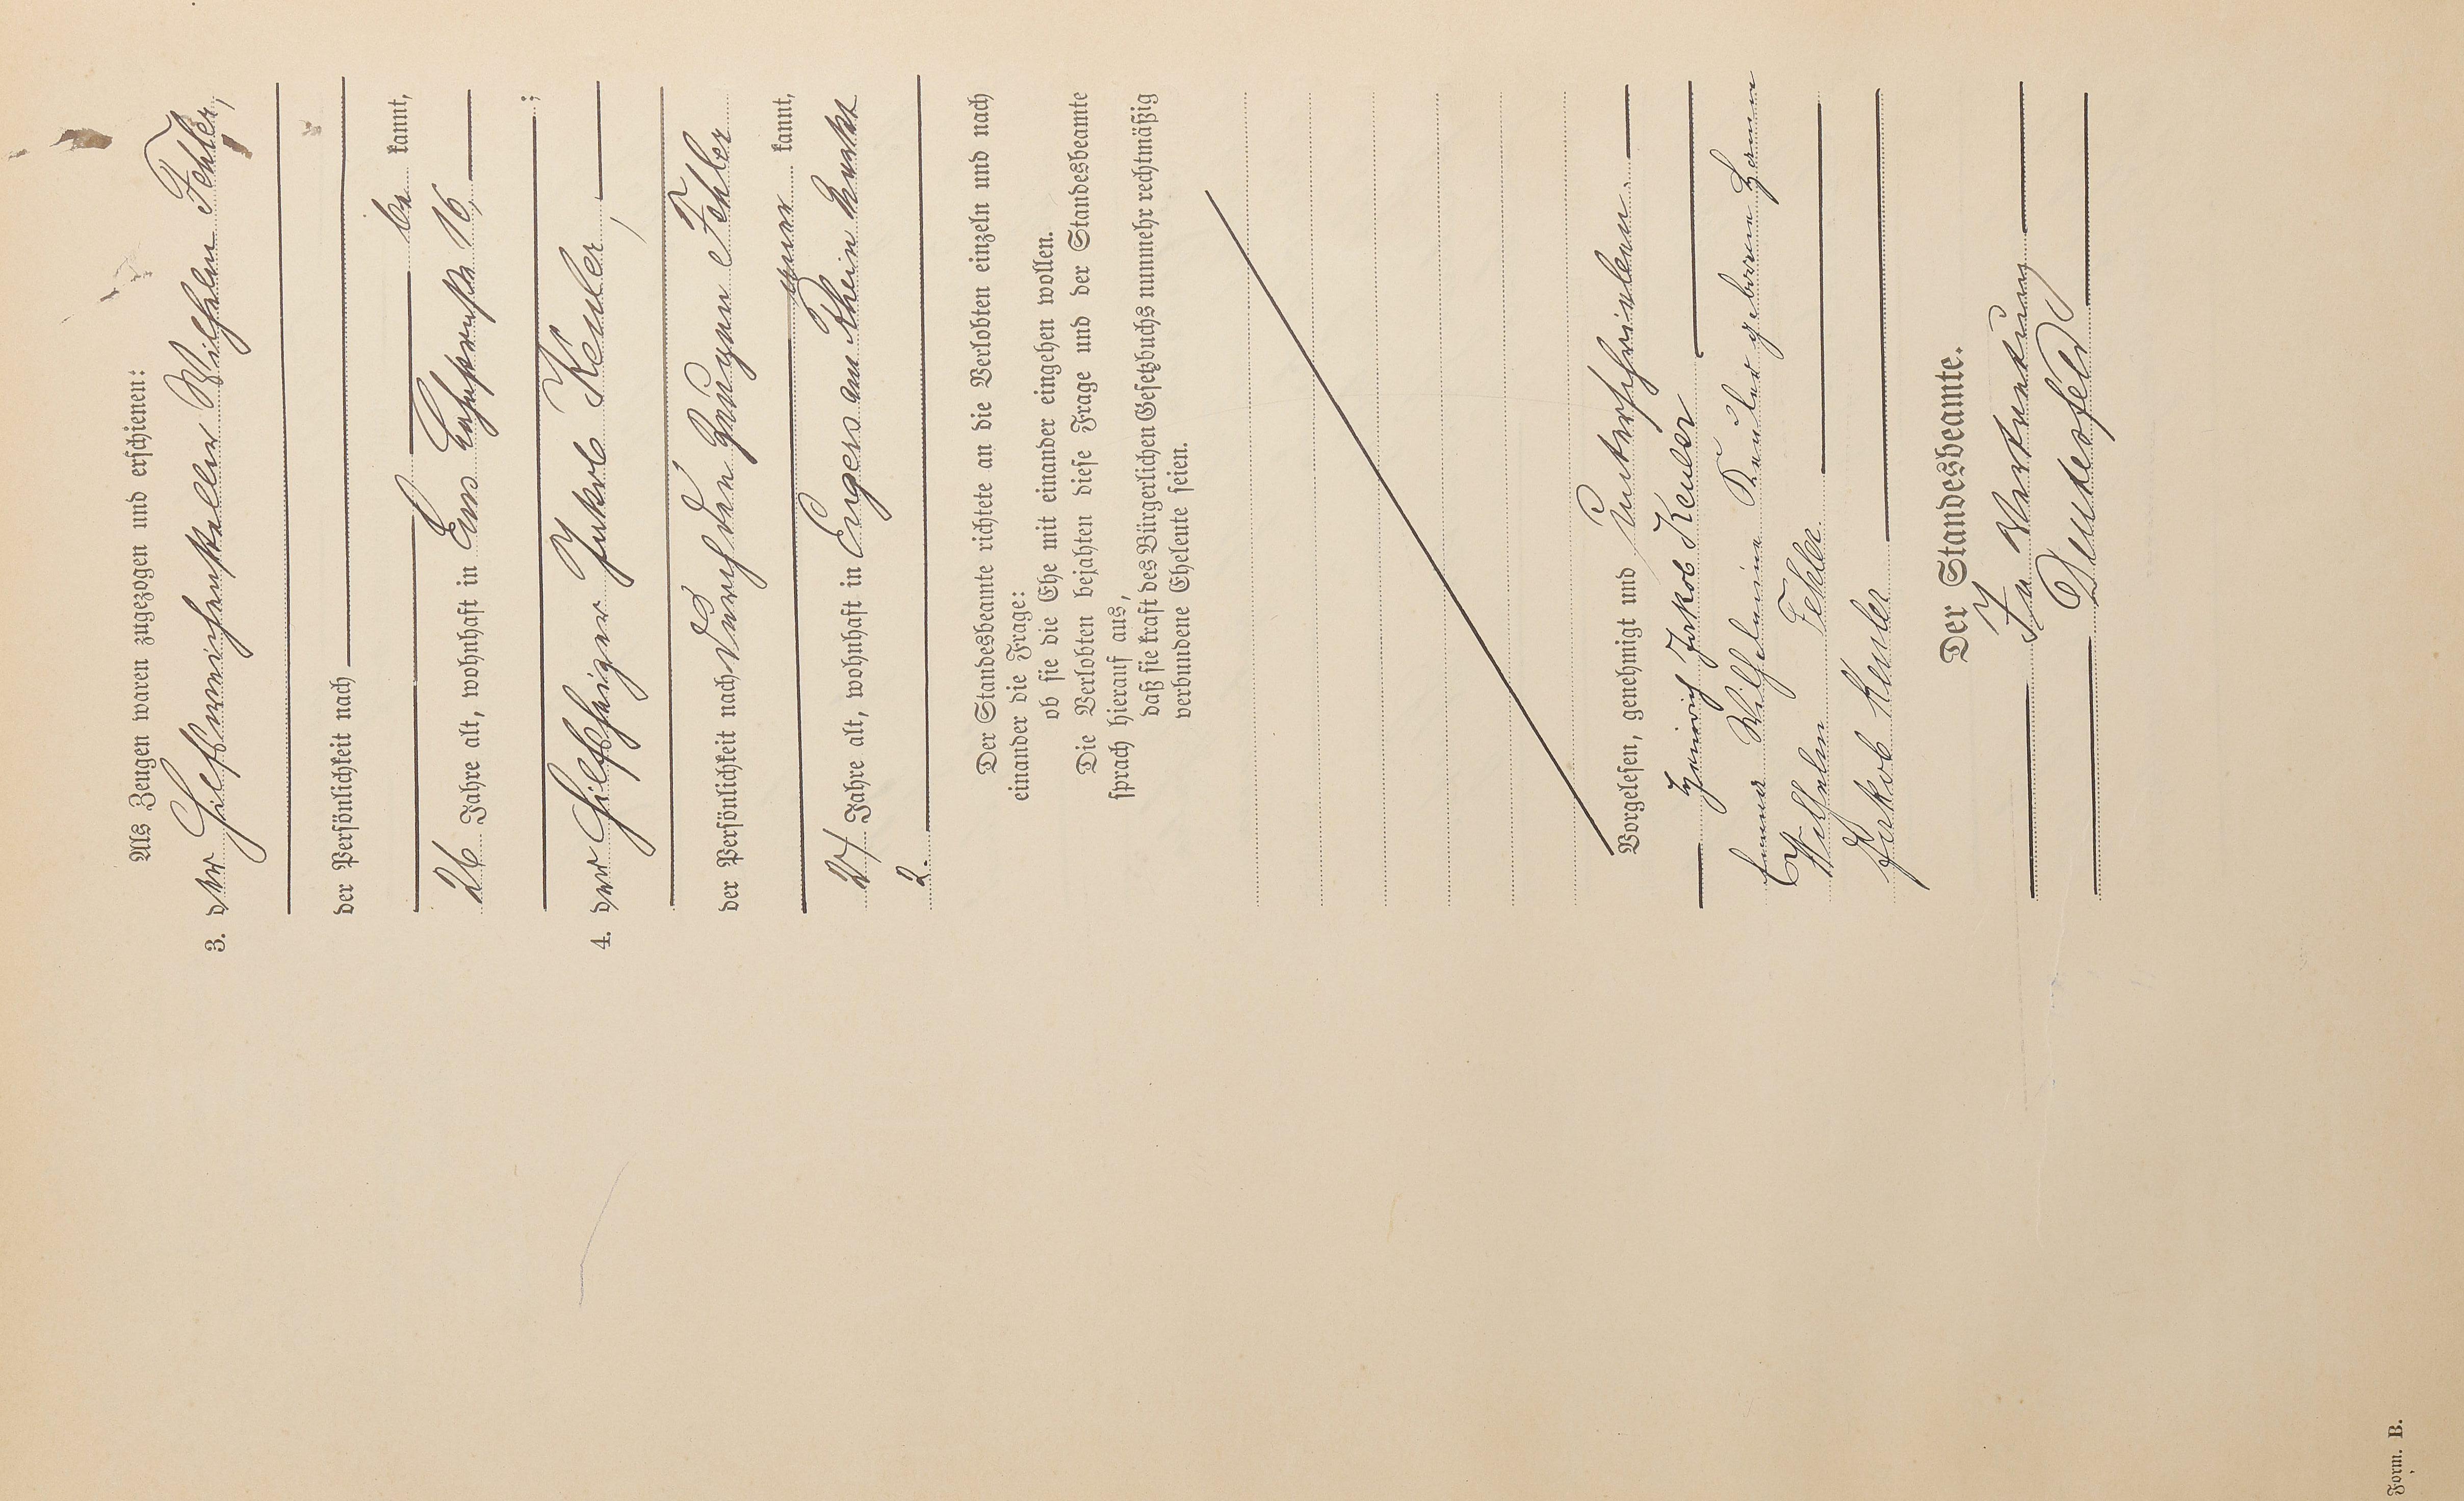 Als Zeugen waren zugezogen und erschienen:
3. der Hilfsweichensteller Wilhelm Fehler,
der Persönlichkeit nach
be kannt,
26 Jahre alt, wohnhaft in Ems Lahnstraße 16,
;
4. der Hilfsheizer Jakob Keuler,
der Persönlichkeit nach durch den Zeugen Fehler
aner kannt,
24 Jahre alt, wohnhaft in Engers am Rhein
2.
Der Standesbeamte richtete an die Verlobten einzeln und nach
einander die Frage:
ob sie die Ehe mit einander eingehen wollen.
Die Verlobten bejahten diese Frage und der Standesbeamte
sprach hierauf aus,
daß sie kraft des Bürgerlichen Gesetzbuchs nunmehr rechtmäßig
verbundene Eheleute seien.
Vorgelesen, genehmigt und unterschrieben.
Heinrich Jakob Keuler
Emma Wilhelmine Keuler geborene
Wilhelm Fehler
Jakob Keuler
Der Standesbeamte.
In Vertretung
Form. B.